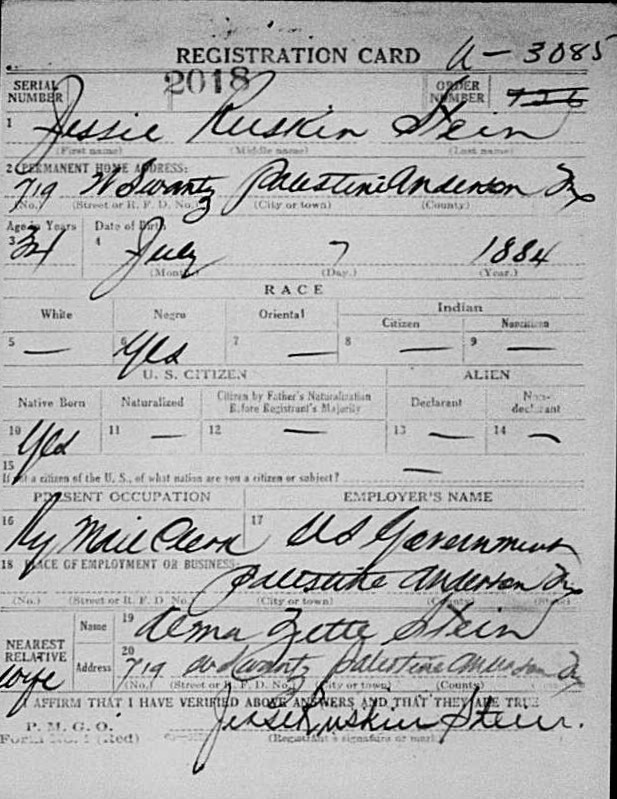 REGISTRATION CARD U-3085
SERIAL NUMBER 2018 ORDER NUMBER 726
1 Jessie Ruskin Stein
(First name) (Middle name) (Last name)
2 PERMANENT HOME ADDRESS:
719 W Swantz Palestine Anderson Tx
(No.) (Street or R. F. D. No.) (City or town) (County)
Age in Years Date of Birth
3 34 4 July 7 1884
(Month.) (Day.) (Year.)
RACE
White Negro Oriental Indian
Citizen Noncitizen
5 — 6 Yes 7 — 8 — 9 —
U. S. CITIZEN ALIEN
Native Born Naturalized Citizen by Father's Naturalization Before Registrant's Majority Declarant Non-declarant
10 Yes 11 — 12 — 13 — 14 —
15 If not a citizen of the U. S., of what nation are you a citizen or subject? —
PRESENT OCCUPATION EMPLOYER'S NAME
16 Ry Mail Clerk 17 US Government
18 PLACE OF EMPLOYMENT OR BUSINESS:
Palestine Anderson Tx
(No.) (Street or R. F. D. No.) (City or town) (County) (State)
NEAREST RELATIVE Name 19 Alma Zette Stein
Wife Address 20 719 W Swantz Palestine Anderson Tx
(No.) (Street or R. F. D. No.) (City or town) (County)
I AFFIRM THAT I HAVE VERIFIED ABOVE ANSWERS AND THAT THEY ARE TRUE
P. M. G. O.
Form No. 1 (Red) Jessie Ruskin Stein.
(Registrant's signature or mark)